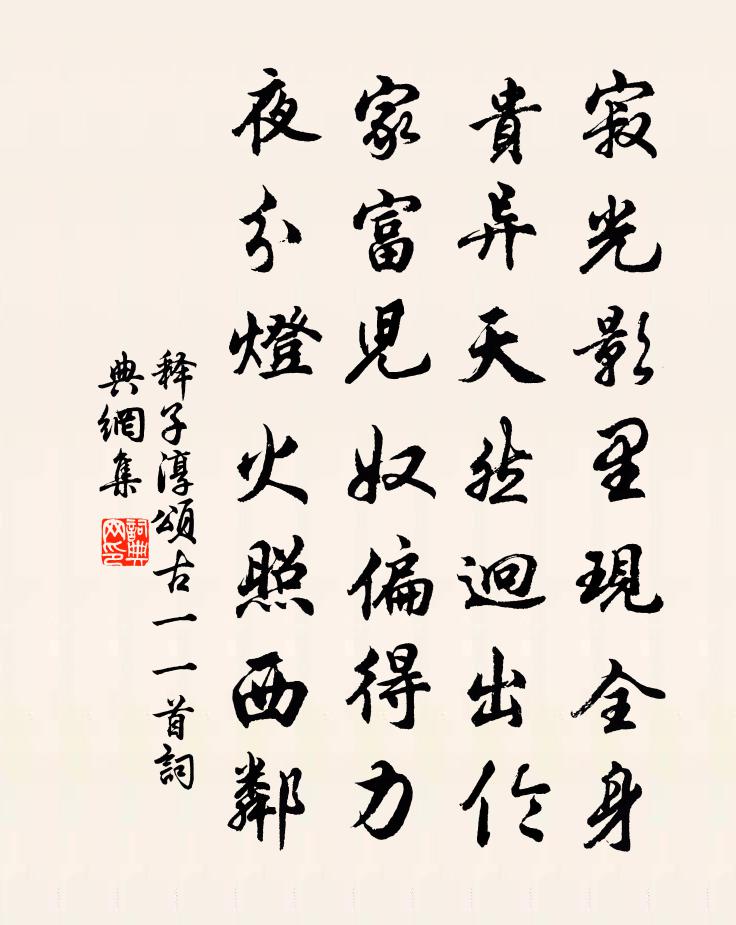 寂光影里現全身
貴异天然迥出伦
家富児奴偏得力
夜分燈火照西鄰
释子淳頌古一一首詞
典網集
詞典
网印